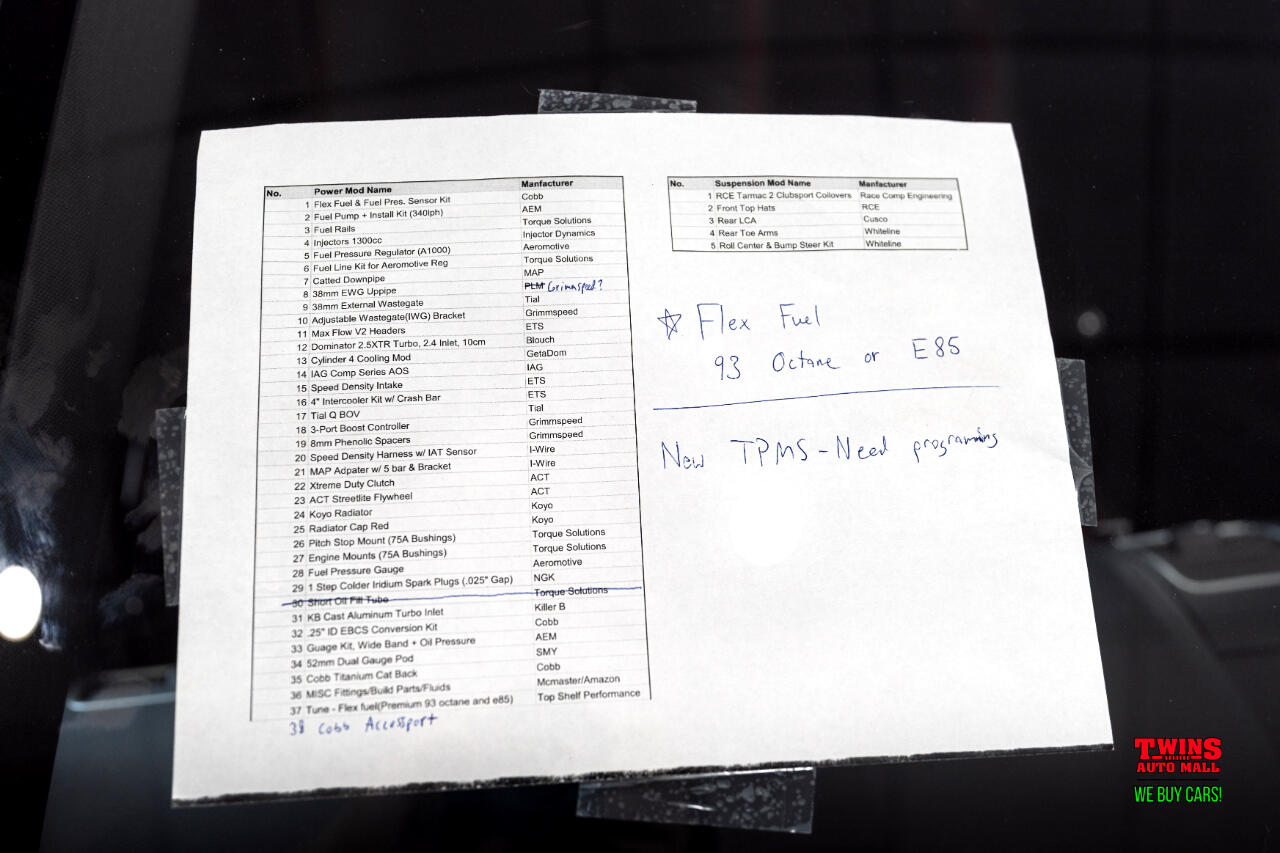 No. Power Mod Name Manfacturer
1 Flex Fuel & Fuel Pres. Sensor Kit Cobb
2 Fuel Pump + Install Kit (340lph) AEM
3 Fuel Rails Torque Solutions
4 Injectors 1300cc Injector Dynamics
5 Fuel Pressure Regulator (A1000) Aeromotive
6 Fuel Line Kit for Aeromotive Reg Torque Solutions
7 Catted Downpipe MAP
8 38mm EWG Uppipe PLM Grimmspeed?
9 38mm External Wastegate Tial
10 Adjustable Wastegate(IWG) Bracket Grimmspeed
11 Max Flow V2 Headers ETS
12 Dominator 2.5XTR Turbo, 2.4 Inlet, 10cm Blouch
13 Cylinder 4 Cooling Mod GetaDom
14 IAG Comp Series AOS IAG
15 Speed Density Intake ETS
16 4" Intercooler Kit w/ Crash Bar ETS
17 Tial Q BOV Tial
18 3-Port Boost Controller Grimmspeed
19 8mm Phenolic Spacers Grimmspeed
20 Speed Density Harness w/ IAT Sensor I-Wire
21 MAP Adpater w/ 5 bar & Bracket I-Wire
22 Xtreme Duty Clutch ACT
23 ACT Streetlite Flywheel ACT
24 Koyo Radiator Koyo
25 Radiator Cap Red Koyo
26 Pitch Stop Mount (75A Bushings) Torque Solutions
27 Engine Mounts (75A Bushings) Torque Solutions
28 Fuel Pressure Gauge Aeromotive
29 1 Step Colder Iridium Spark Plugs (.025" Gap) NGK
30 Short Oil Fill Tube Torque Solutions
31 KB Cast Aluminum Turbo Inlet Killer B
32 .25" ID EBCS Conversion Kit Cobb
33 Guage Kit, Wide Band + Oil Pressure AEM
34 52mm Dual Gauge Pod SMY
35 Cobb Titanium Cat Back Cobb
36 MISC Fittings/Build Parts/Fluids Mcmaster/Amazon
37 Tune - Flex fuel(Premium 93 octane and e85) Top Shelf Performance
38 Cobb Accessport
No. Suspension Mod Name Manfacturer
1 RCE Tarmac 2 Clubsport Coilovers Race Comp Engineering
2 Front Top Hats RCE
3 Rear LCA Cusco
4 Rear Toe Arms Whiteline
5 Roll Center & Bump Steer Kit Whiteline
☆ Flex Fuel
93 Octane or E85
New TPMS - Need programing
TWINS
AUTO MALL
WE BUY CARS!